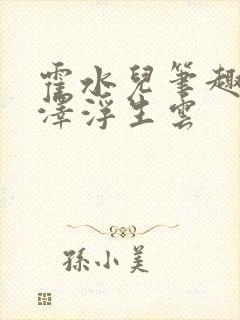 霍水兒筆趣
澤浮生雲
孫小美